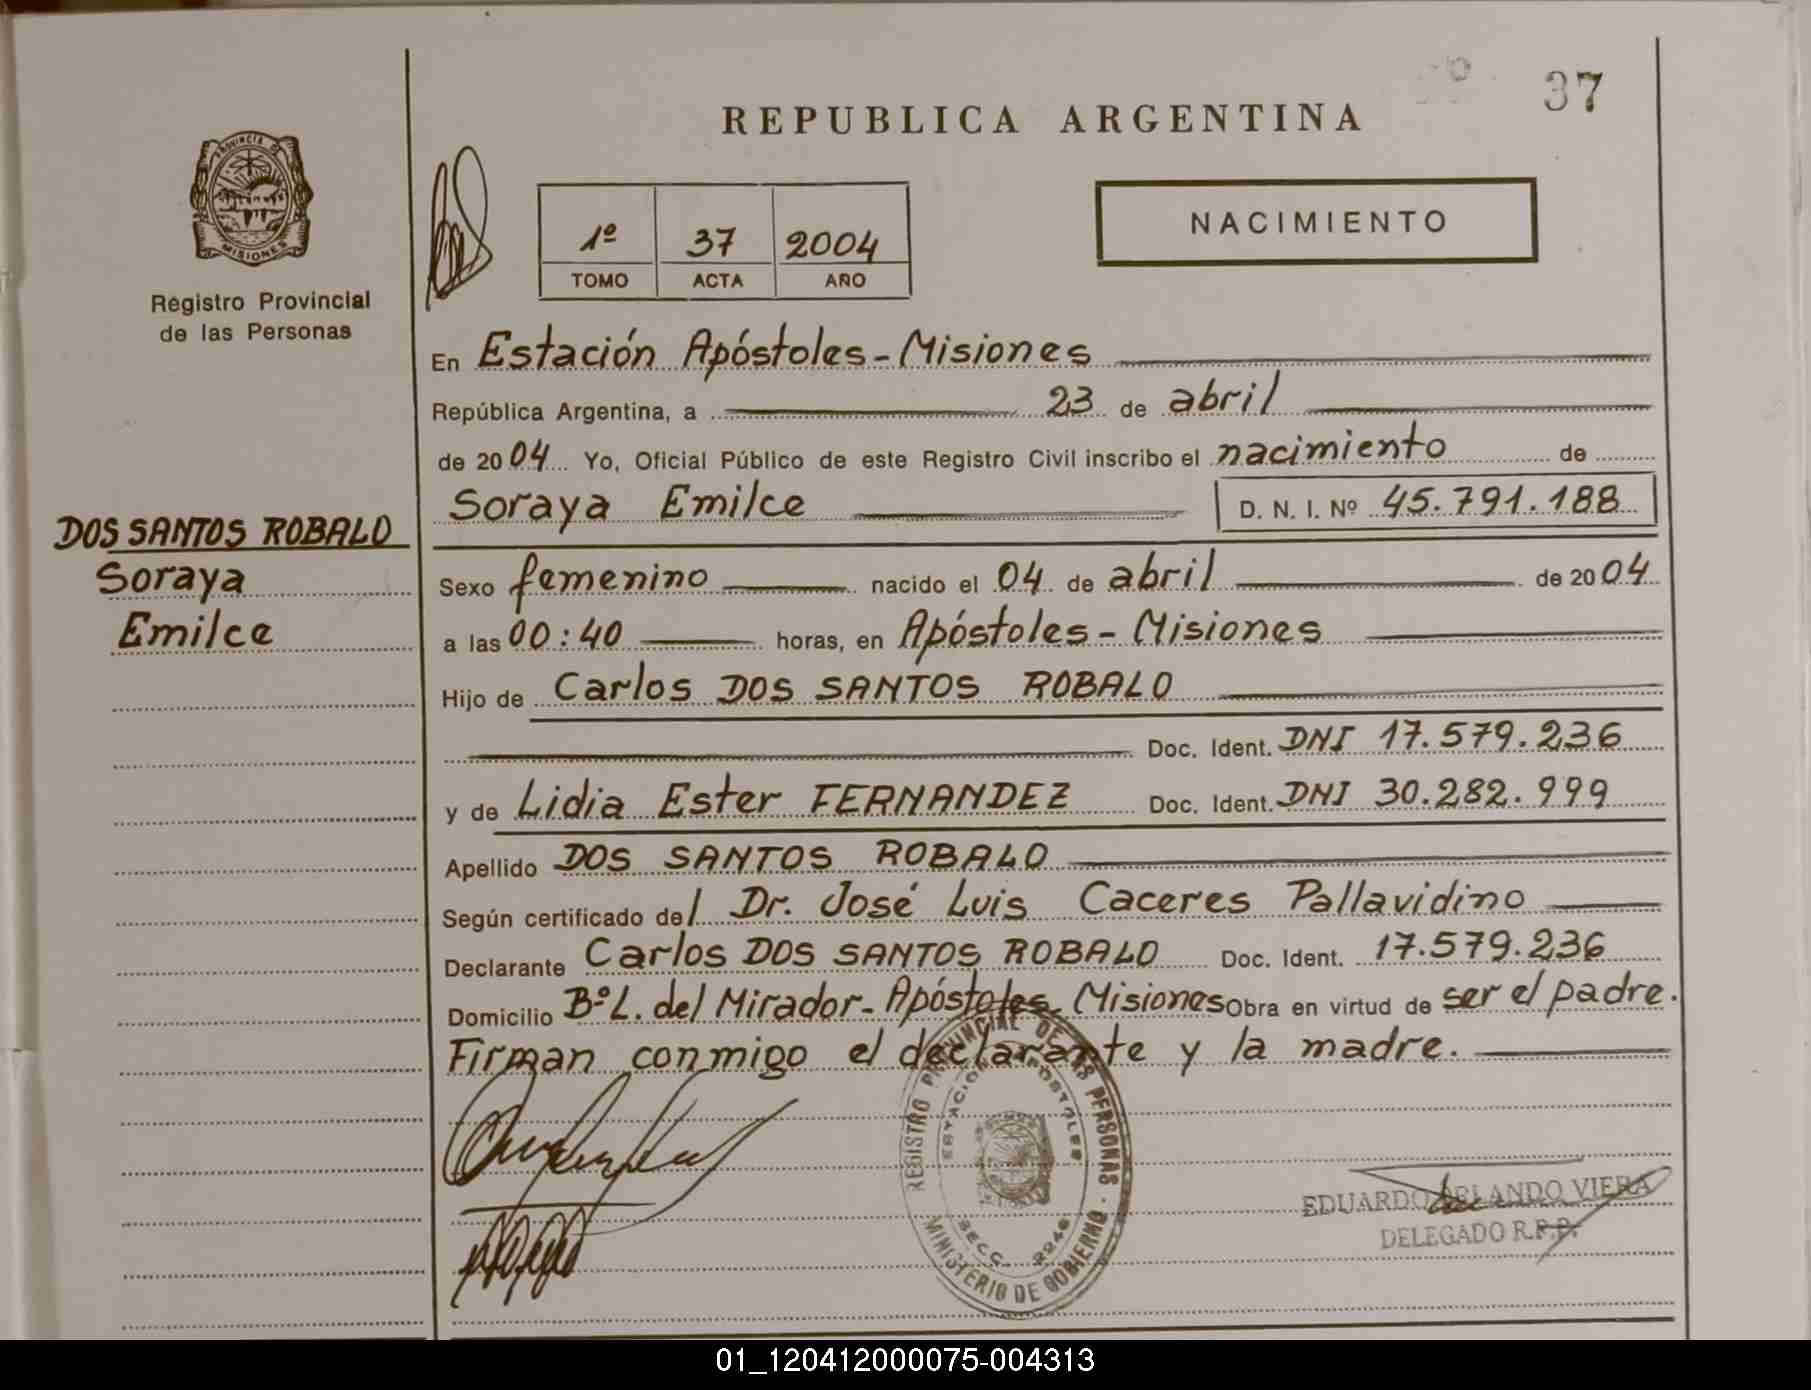 37
REPUBLICA ARGENTINA
PROVINCIA DE
MISIONES
Registro Provincial
de las Personas
1º 37 2004
TOMO ACTA AÑO
NACIMIENTO
En Estación Apóstoles - Misiones
República Argentina, a 23 de abril
de 2004 Yo, Oficial Público de este Registro Civil inscribo el nacimiento de
Soraya Emilce D. N. I. Nº 45.791.188
DOS SANTOS ROBALO
Soraya
Emilce
Sexo femenino nacido el 04 de abril de 2004
a las 00:40 horas, en Apóstoles - Misiones
Hijo de Carlos DOS SANTOS ROBALO
Doc. Ident. DNI 17.579.236
y de Lidia Ester FERNANDEZ Doc. Ident. DNI 30.282.999
Apellido DOS SANTOS ROBALO
Según certificado del Dr. José Luis Caceres Pallavidino
Declarante Carlos DOS SANTOS ROBALO Doc. Ident. 17.579.236
Domicilio Bº L. del Mirador - Apóstoles - Misiones Obra en virtud de ser el padre.
Firman conmigo el declarante y la madre.
REGISTRO PROVINCIAL DE LAS PERSONAS
ESTACION APOSTOLES
SECC. 2246
MINISTERIO DE GOBIERNO
EDUARDO ORLANDO VIERA
DELEGADO R.P.P.
01_120412000075-004313